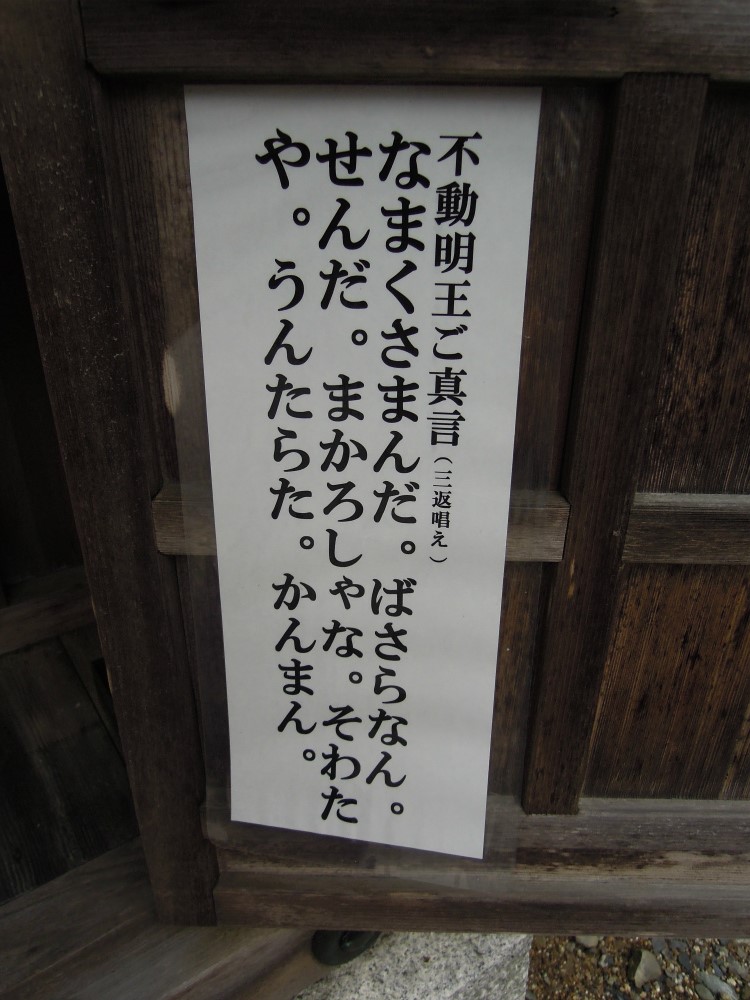 不動明王ご真言（三返唱え）
なまくさまんだ。ばさらなん。
せんだ。まかろしゃな。そわた
や。うんたらた。かんまん。